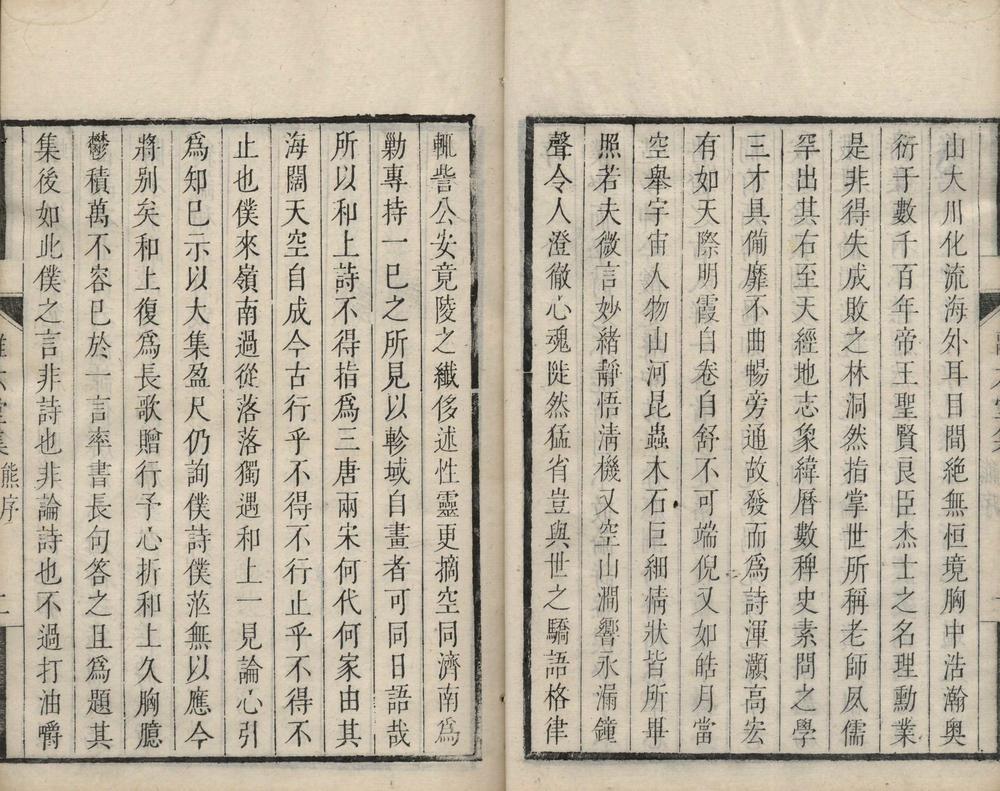 山大川化流海外耳目間絶無恒境胸中浩瀚奧
衍于數千百年帝王聖賢良臣杰士之名理勳業
是非得失成敗之林洞然指掌世所稱老師夙儒
罕出其右至天經地志象緯曆數稗史素問之學
三才具備靡不曲暢旁通故發而爲詩渾灝高宏
有如天際明霞自卷自舒不可端倪又如皓月當
空舉宇宙人物山河昆蟲木石巨細情狀皆所畢
照若夫微言妙緒靜悟清機又空山澗響永漏鐘
聲令人澄徹心魂陡然猛省豈與世之驕語格律
輒訾公安竟陵之纖侈述性靈更摘空同濟南爲
勦專持一已之所見以軫域自畫者可同日語哉
所以和上詩不得指爲三唐兩宋何代何家由其
海闊天空自成今古行乎不得不行止乎不得不
止也僕來嶺南過從落落獨遇和上一見論心引
爲知已示以大集盈尺仍詢僕詩僕茫無以應今
將别矣和上復爲長歌贈行予心折和上久胸臆
鬱積萬不容已於一言率書長句答之且爲題其
集後如此僕之言非詩也非論詩也不過打油嚼
離六堂集 熊序 二